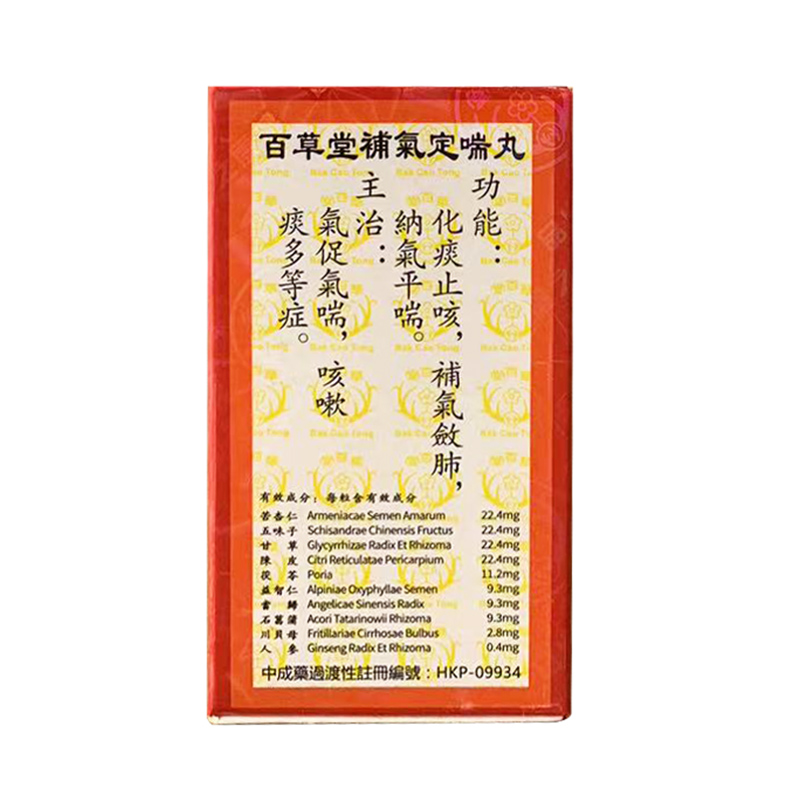 百草堂補氣定喘丸
功能：
化痰止咳，補氣斂肺，
納氣平喘。
主治：
氣促氣喘，咳嗽
痰多等症。
有效成分：每粒含有效成分
苦杏仁 Armeniacae Semen Amarum 22.4mg
五味子 Schisandrae Chinensis Fructus 22.4mg
甘草 Glycyrrhizae Radix Et Rhizoma 22.4mg
陳皮 Citri Reticulatae Pericarpium 22.4mg
茯苓 Poria 11.2mg
益智仁 Alpiniae Oxyphyllae Semen 9.3mg
當歸 Angelicae Sinensis Radix 9.3mg
石菖蒲 Acori Tatarinowii Rhizoma 9.3mg
川貝母 Fritillariae Cirrhosae Bulbus 2.8mg
人參 Ginseng Radix Et Rhizoma 0.4mg
中成藥過渡性註冊編號：HKP-09934